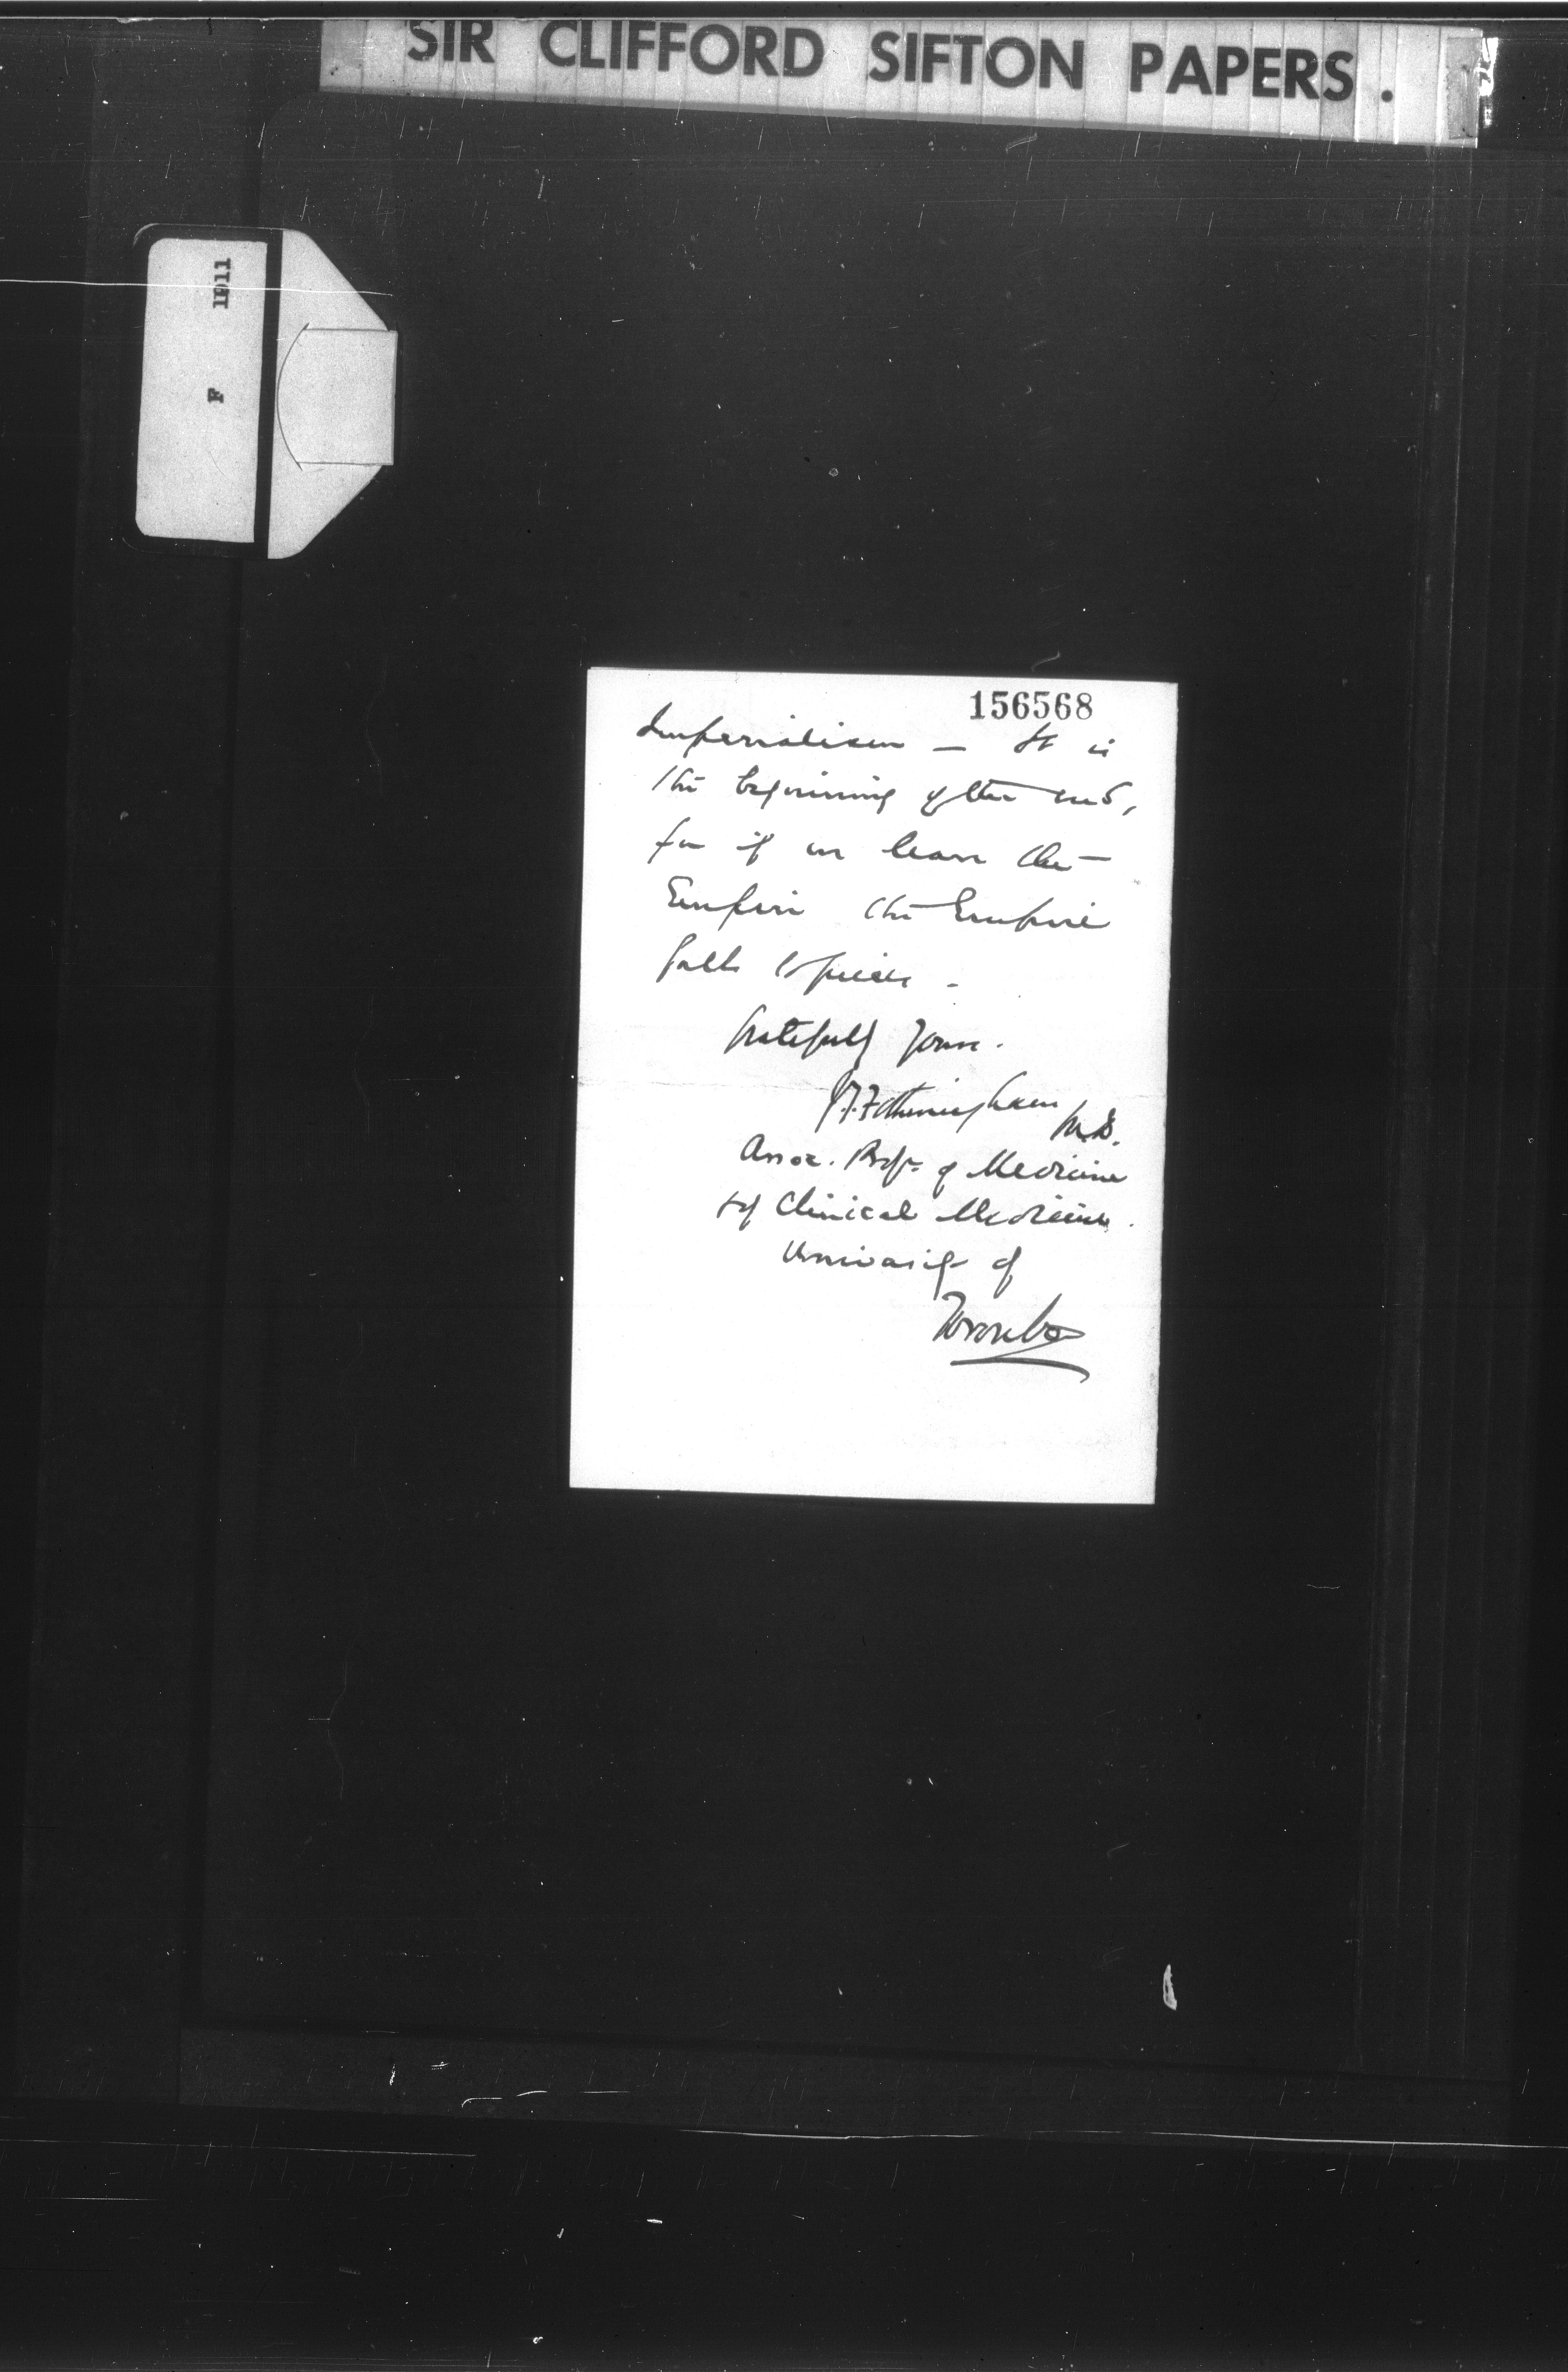 SIR CLIFFORD SIFTON PAPERS.
1911
F
156568
Imperialism — It is
the beginning of the end,
for if we leave the
Empire the Empire
falls to pieces.
Gratefully yours.
J.T. Fotheringham M.B.
Assoc. Profr. of Medicine
& of Clinical Medicine.
University of
Toronto